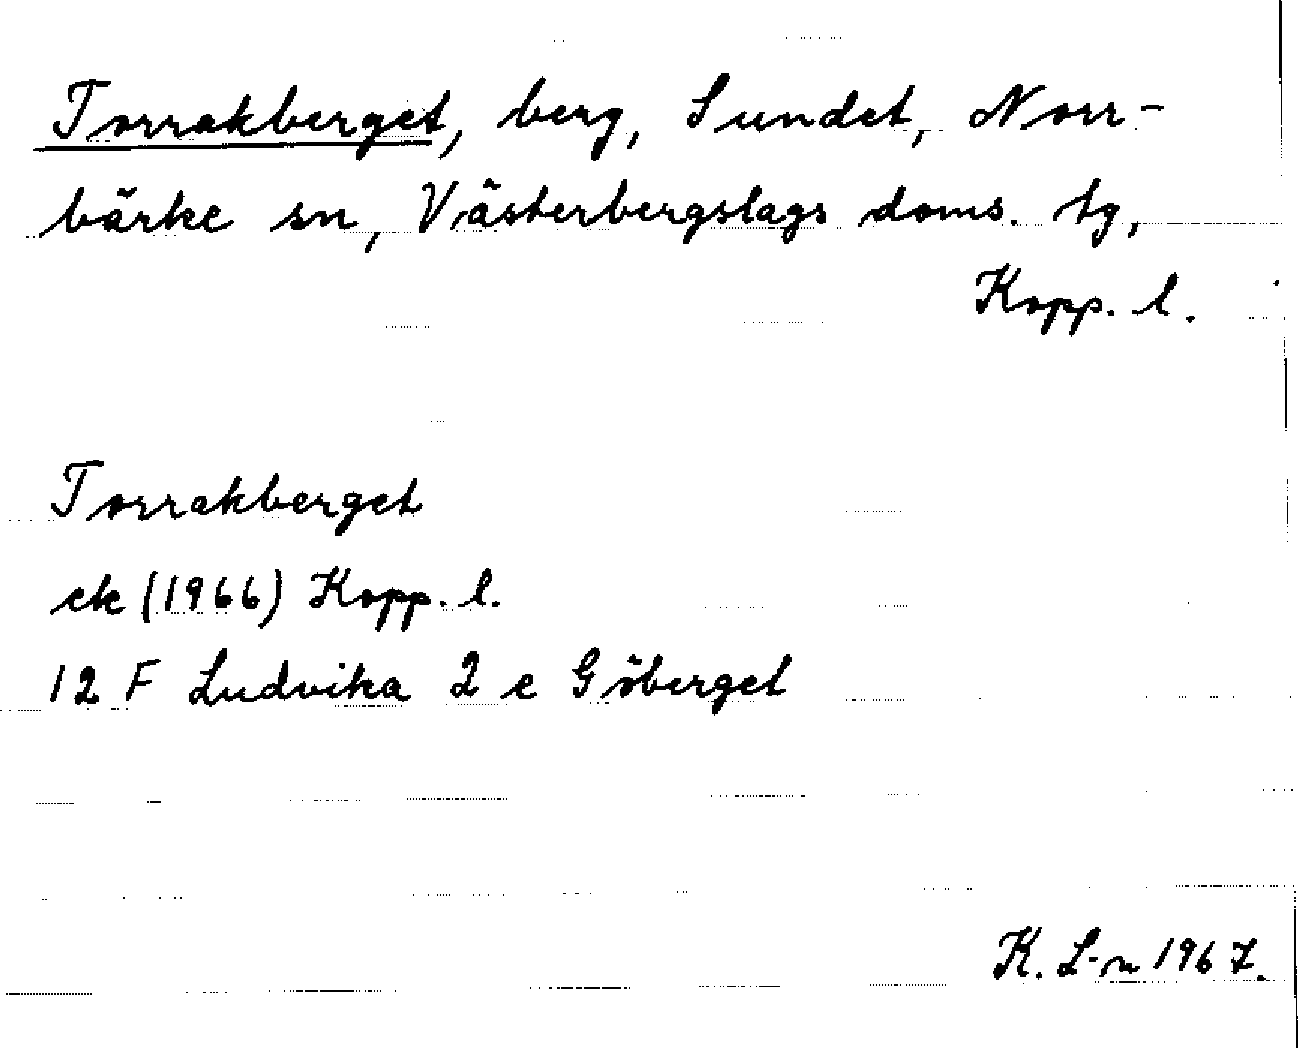 Torrakberget, berg, Sundet, Norr-
bärke sn, Västerbergslags doms. tg,
Kopp. l.
Torrakberget
ek (1966) Kopp. l.
12 F Ludvika 2 e Göberget
K. L-n 1967.